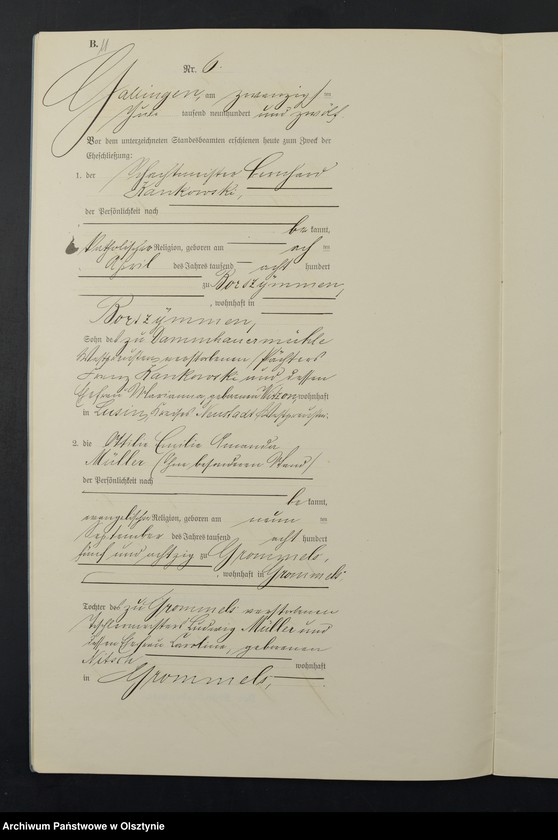 B. 11
Nr. 6.
Gallingen, am zwanzigsten
Juni tausend neunhundert und zwölf
Vor dem unterzeichneten Standesbeamten erschienen heute zum Zweck der
Eheschließung:
1. der Schachtmeister Bernhard
Kankowski,
der Persönlichkeit nach
be kannt,
katholischer Religion, geboren am ach ten
April des Jahres tausend acht hundert
zu Borszymmen,
, wohnhaft in
Borszymmen,
Sohn des zu
Westpreußen verstorbenen Pächters
Franz Kankowski und dessen
Ehefrau Marianna gebornen, wohnhaft
in Lusin, Kreises Neustadt Westpreußen.
2. die Ottilie Emilie Amanda
Müller (Ohne besonderen Stand)
der Persönlichkeit nach
be kannt,
evangelischer Religion, geboren am neun ten
September des Jahres tausend acht hundert
fünf und achtzig zu Grommels,
, wohnhaft in Grommels.
Tochter des zu Grommels verstorbenen
Tischlermeisters Ludwig Müller und
dessen Ehefrau Caroline, geborenen
Nitsch wohnhaft
in Grommels,
Archiwum Państwowe w Olsztynie